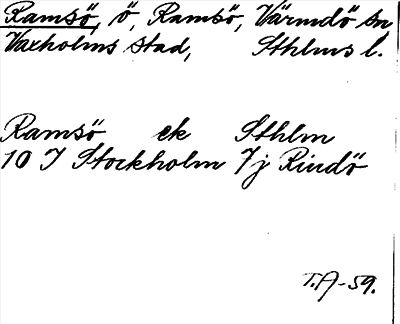 Ramsö, ö, Ramsö, Värmdö sn
Vaxholms stad, Sthlms l.
Ramsö ek Sthlm
10 I Stockholm 7j Rindö
T.A-59.